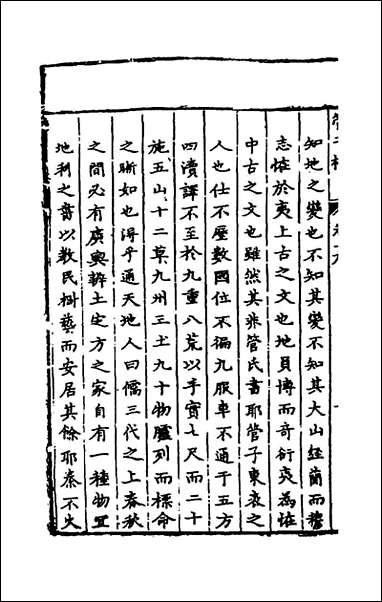 知地之變也不知其變不知其大山經簡而穆
志恠於夷上古之文也地員博而奇衍爽為恠
中古之文也雖然其非管氏書耶管子東表之
人也仕不歷數國位不徧九服車不通于五方
四瀆譯不至於九重八荒以手實七尺而二十
施五山十二草九州三土九十物臚列而標命
之晰如也得乎通天地人曰儒三代之上春秋
之間必有廣輿辨土定方之家自有一種物
地利之書以教民樹藝而安居其餘耶秦不火